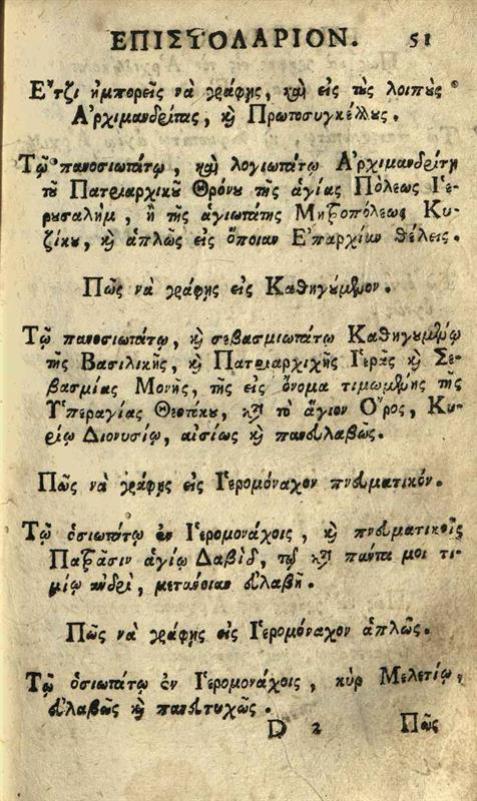 ΕΠΙΣΤΟΛΑΡΙΟΝ. 51
Ἔτζι ἠμπορεῖς νὰ γράφῃς, καὶ εἰς τοὺς λοιποὺς
Ἀρχιμανδρίτας, καὶ Πρωτοσυγκέλλους.
Τῷ πανοσιωτάτῳ, καὶ λογιωτάτῳ Ἀρχιμανδρίτῃ
τοῦ Πατριαρχικοῦ Θρόνου τῆς ἁγίας Πόλεως Ἱε-
ρουσαλὴμ, ἢ τῆς ἁγιωτάτης Μητροπόλεως Κυ-
ζίκου, καὶ ἁπλῶς εἰς ὅποιαν Ἐπαρχίαν θέλεις.
Πῶς νὰ γράφῃς εἰς Καθηγούμενον.
Τῷ πανοσιωτάτῳ, καὶ σεβασμιωτάτῳ Καθηγουμένῳ
τῆς Βασιλικῆς, καὶ Πατριαρχικῆς Ἱερᾶς καὶ Σε-
βασμίας Μονῆς, τῆς εἰς ὄνομα τιμωμένης τῆς
Ὑπεραγίας Θεοτόκου, κατὰ τὸ ἅγιον Ὄρος, Κυ-
ρίῳ Διονυσίῳ, αἰσίως καὶ πανευλαβῶς.
Πῶς νὰ γράφῃς εἰς Ἱερομόναχον πνευματικόν.
Τῷ ὁσιωτάτῳ ἐν Ἱερομονάχοις, καὶ πνευματικοῖς
Πατράσιν ἁγίῳ Δαβὶδ, τῷ κατὰ πάντα μοι τι-
μίῳ ἀνδρὶ, μετάνοιαν εὐλαβῆ.
Πῶς νὰ γράφῃς εἰς Ἱερομόναχον ἁπλῶς.
Τῷ ὁσιωτάτῳ ἐν Ἱερομονάχοις, κὺρ Μελετίῳ,
εὐλαβῶς καὶ πανευτυχῶς.
D 2 Πῶς